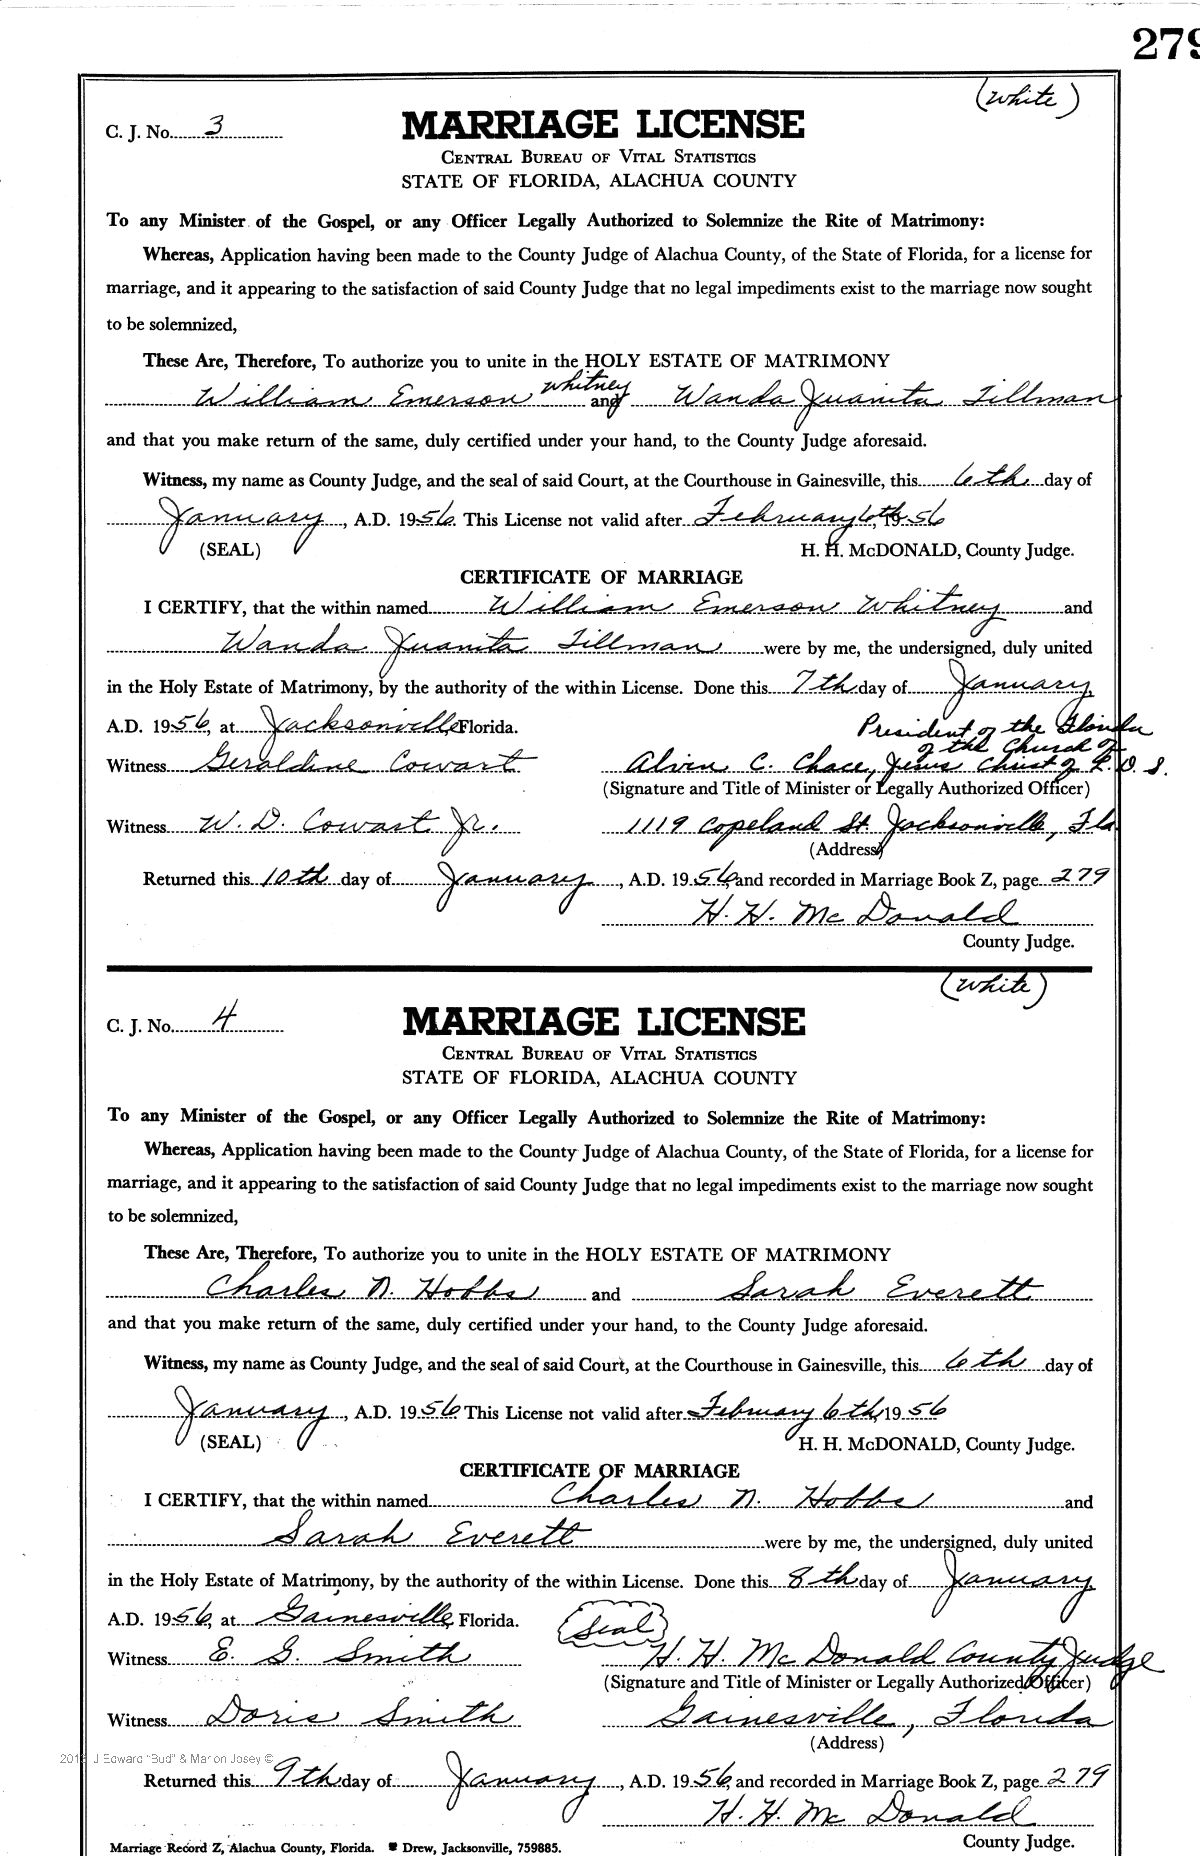 279
(White)
C. J. No. 3
MARRIAGE LICENSE
CENTRAL BUREAU OF VITAL STATISTICS
STATE OF FLORIDA, ALACHUA COUNTY
To any Minister of the Gospel, or any Officer Legally Authorized to Solemnize the Rite of Matrimony:
Whereas, Application having been made to the County Judge of Alachua County, of the State of Florida, for a license for
marriage, and it appearing to the satisfaction of said County Judge that no legal impediments exist to the marriage now sought
to be solemnized,
These Are, Therefore, To authorize you to unite in the HOLY ESTATE OF MATRIMONY
William Emerson Whitney and Wanda Juanita Tillman
and that you make return of the same, duly certified under your hand, to the County Judge aforesaid.
Witness, my name as County Judge, and the seal of said Court, at the Courthouse in Gainesville, this 6th day of
January, A.D. 1956. This License not valid after February 6th, 1956
(SEAL) H. H. McDONALD, County Judge.
CERTIFICATE OF MARRIAGE
I CERTIFY, that the within named William Emerson Whitney and
Wanda Juanita Tillman were by me, the undersigned, duly united
in the Holy Estate of Matrimony, by the authority of the within License. Done this 7th day of January
A.D. 1956, at Jacksonville Florida. President of the Florida
of the Church of
Witness Geraldine Cowart Alvin C. Chace, Jesus Christ of L. D. S.
(Signature and Title of Minister or Legally Authorized Officer)
Witness W. D. Cowart Jr. 1119 Copeland St. Jacksonville, Fla
(Address)
Returned this 10th day of January, A.D. 1956, and recorded in Marriage Book Z, page 279
H. H. Mc Donald
County Judge.
(White)
C. J. No. 4
MARRIAGE LICENSE
CENTRAL BUREAU OF VITAL STATISTICS
STATE OF FLORIDA, ALACHUA COUNTY
To any Minister of the Gospel, or any Officer Legally Authorized to Solemnize the Rite of Matrimony:
Whereas, Application having been made to the County Judge of Alachua County, of the State of Florida, for a license for
marriage, and it appearing to the satisfaction of said County Judge that no legal impediments exist to the marriage now sought
to be solemnized,
These Are, Therefore, To authorize you to unite in the HOLY ESTATE OF MATRIMONY
Charles N. Hobbs and Sarah Everett
and that you make return of the same, duly certified under your hand, to the County Judge aforesaid.
Witness, my name as County Judge, and the seal of said Court, at the Courthouse in Gainesville, this 6th day of
January, A.D. 1956. This License not valid after February 6th, 1956
(SEAL) H. H. McDONALD, County Judge.
CERTIFICATE OF MARRIAGE
I CERTIFY, that the within named Charles N. Hobbs and
Sarah Everett were by me, the undersigned, duly united
in the Holy Estate of Matrimony, by the authority of the within License. Done this 8th day of January
A.D. 1956, at Gainesville, Florida. Seal
Witness E. G. Smith H. H. Mc Donald County Judge
(Signature and Title of Minister or Legally Authorized Officer)
Witness Doris Smith Gainesville, Florida
(Address)
J Edward "Bud" & Marion Josey ©
Returned this 9th day of January, A.D. 1956, and recorded in Marriage Book Z, page 279
H. H. Mc Donald
County Judge.
Marriage Record Z, Alachua County, Florida. Drew, Jacksonville, 759885.